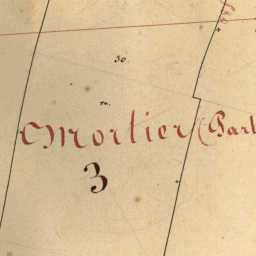 30
Mortier (Part
3